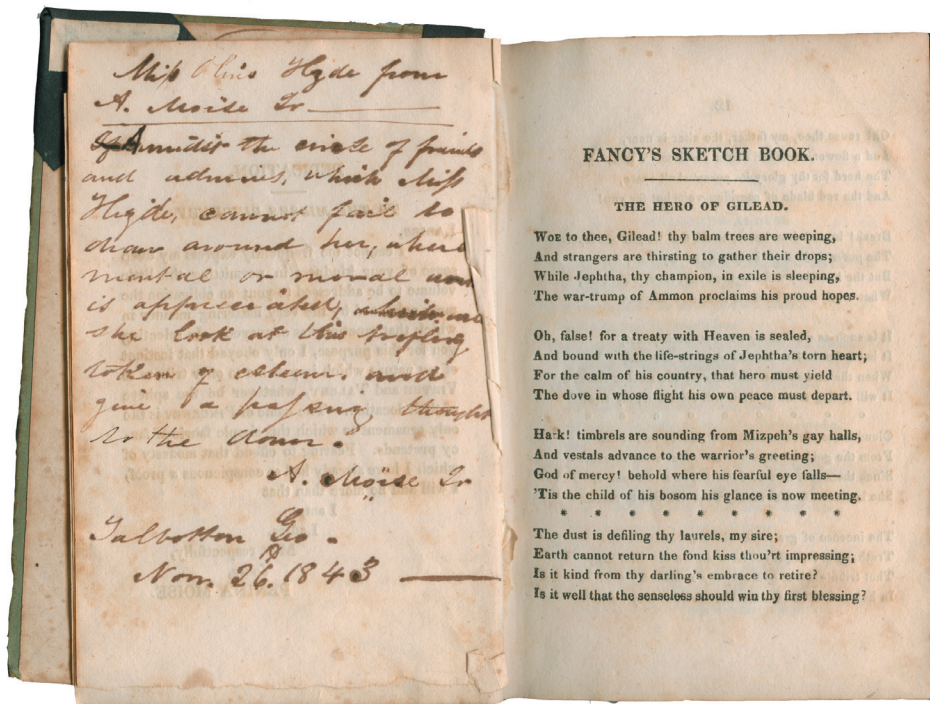 Miss Hyde from
A. Moïse Jr
Amidst the circle of friends
and admirers, which Miss
Hyde, cannot fail to
draw around her, where
mental or moral
is appreciated,
she look at this trifling
token of esteem, and
give a passing thought
to the donor.
A. Moïse Jr
Talbotton Geo.
Nov. 26. 1843
FANCY'S SKETCH BOOK.
THE HERO OF GILEAD.
WOE to thee, Gilead! thy balm trees are weeping,
And strangers are thirsting to gather their drops;
While Jephtha, thy champion, in exile is sleeping,
The war-trump of Ammon proclaims his proud hopes.
Oh, false! for a treaty with Heaven is sealed,
And bound with the life-strings of Jephtha's torn heart;
For the calm of his country, that hero must yield
The dove in whose flight his own peace must depart.
Hark! timbrels are sounding from Mizpeh's gay halls,
And vestals advance to the warrior's greeting;
God of mercy! behold where his fearful eye falls—
'Tis the child of his bosom his glance is now meeting.
* * * * * * * * *
The dust is defiling thy laurels, my sire;
Earth cannot return the fond kiss thou'rt impressing;
Is it kind from thy darling's embrace to retire?
Is it well that the senseless should win thy first blessing?